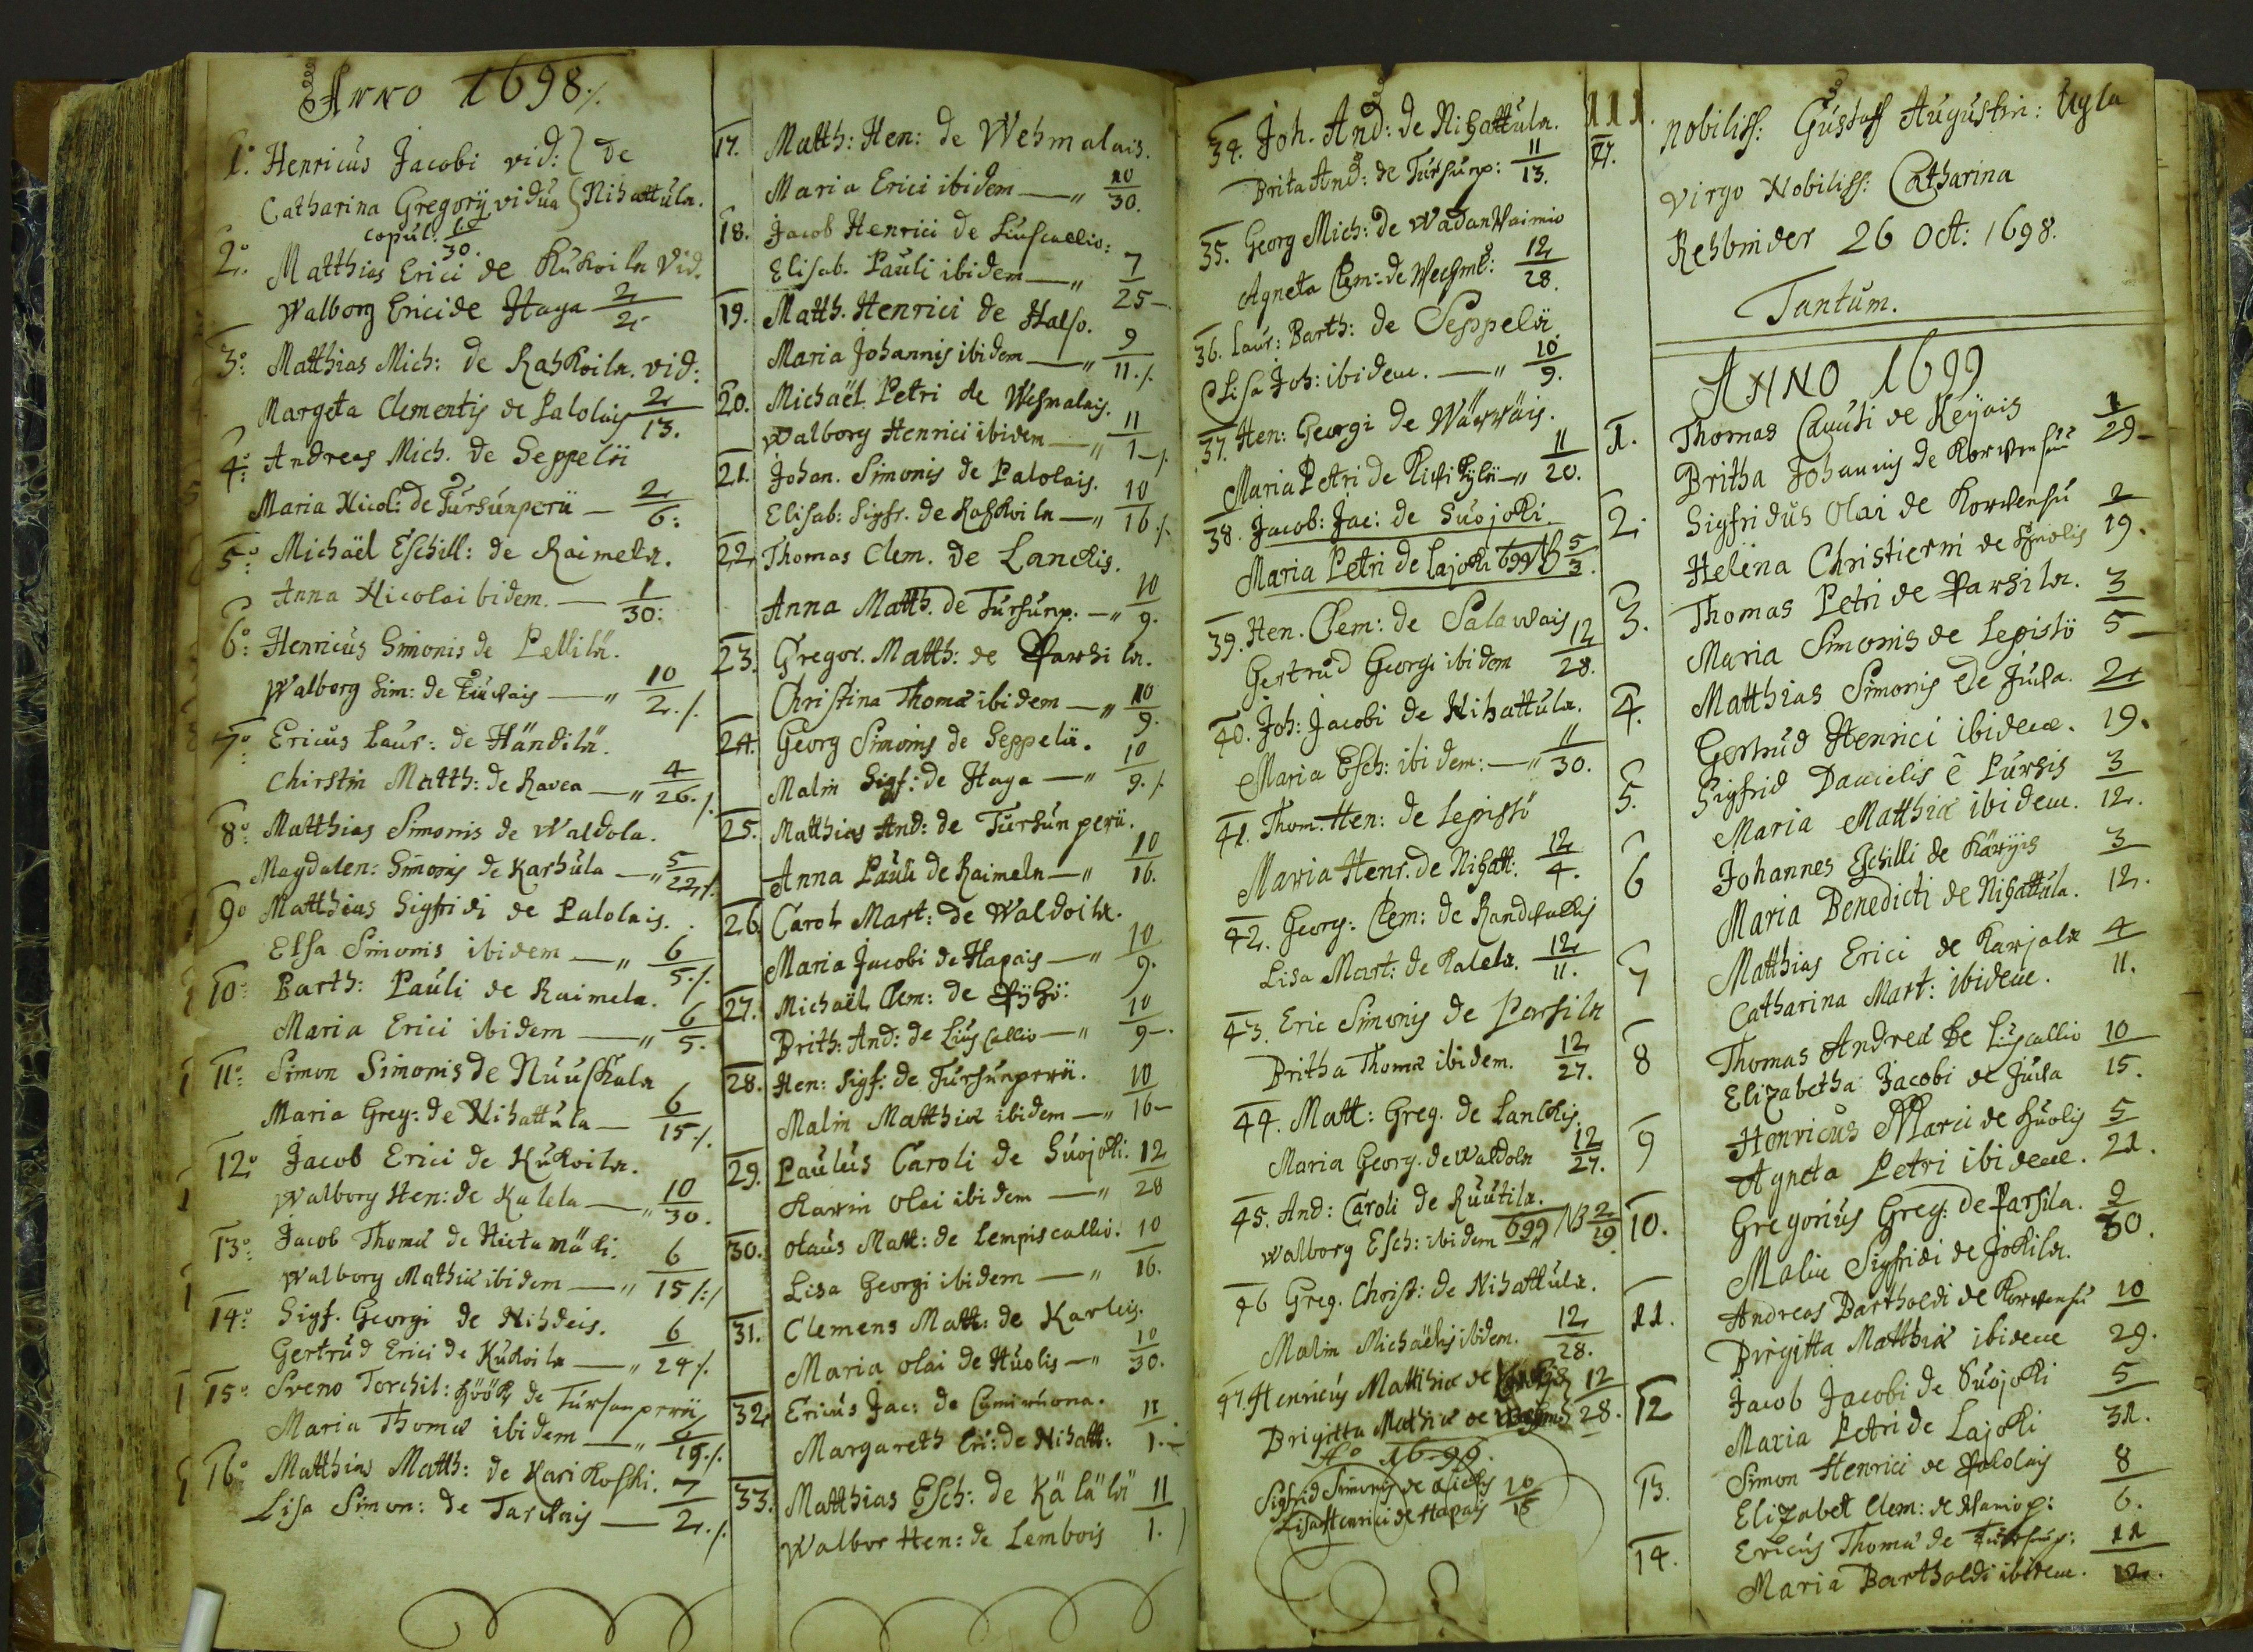 Anno 1698./.
1.° Henricus Jacobi vid: } de
Catharina Gregorij vidua } Nihattula.
copul: 10/30.
2.° Matthias Erici de Kukoila vid.
Walborg Erici de Haga 2/2.
3.° Matthias Mich: de Rahkoila. vid:
Margeta Clementis de Palolais 2/13.
4.° Andreas Mich. de Seppelä
Maria Nicol: de Tursunperä — 2/6:
5.° Michaël Eschill: de Raimela.
Anna Nicolai ibidem. — 1/30:
6.° Henricus Simonis de Pellilä.
Walborg Sim: de — " 10/2./.
7.° Ericus Laur: de Händilä.
Chirstin Matth: de Ravea — " 4/26./.
8.° Matthias Simonis de Waldola.
Magdalen: Simonis de Karhula — " 5/22./.
9.° Matthias Sigfridi de Palolais.
Elsa Simonis ibidem — " 6/5./.
10.° Barth: Pauli de Raimela.
Maria Erici ibidem — " 6/5.
11.° Simon Simonis de Nuuskala
Maria Greg: de Nihattula — 6/15./.
12.° Jacob Erici de Kukoila.
Walborg Hen: de Kalela — " 10/30.
13.° Jacob Thomæ de Hietamäki.
Walborg Mathiæ ibidem — " 6/15/:/
14.° Sigf. Georgi de Nihdeis.
Gertrud Erici de Kukoila — " 6/24/.
15.° Sveno Torchil: Höök de Tursunperä
Maria Thomæ ibidem — " 6/19./.
16.° Matthias Matth: de Karikoski.
Lisa Simon: de Tarvais — 7/2./.
17. Matth: Hen: de Wehmalais.
Maria Erici ibidem — " 10/30.
18. Jacob Henrici de Liuscallio:
Elisab. Pauli ibidem — " 7/25—
19. Matth. Henrici de Halso.
Maria Johannis ibidem — " 9/11./.
20. Michaël Petri de Wehmalais.
Walborg Henrici ibidem — " 11/1—/.
21. Johan. Simonis de Palolais.
Elisab: Sigfr. de Rahkoila — " 10/16./.
22. Thomas Clem. de Lanckis.
Anna Matth. de Tursunp: — " 10/9.
23. Gregor. Matth: de Parsila.
Christina Thomæ ibidem — " 10/9.
24. Georg Simonis de Seppelä.
Malin Sigf: de Haga — " 10/9./.
25. Matthias And: de Tursunperä.
Anna Pauli de Raimela — " 10/16.
26. Carol Mart: de Waldoila.
Maria Jacobi de Hapais — " 10/9.
27. Michaël Clem: de Pyhö:
Brith: And: de Liuscallio — " 10/9—.
28. Hen: Sigf: de Tursunperä.
Malin Matthiæ ibidem — " 10/16—
29. Paulus Caroli de Suojoki.
Karin Olai ibidem — " 12/28
30. Olaus Matt: de Lempiscallio.
Lisa Georgi ibidem — " 10/16.
31. Clemens Matt: de Karleis.
Maria Olai de Huolis — " 10/30.
32. Ericus Jac: de
Margareth Eri: de Nihatt: 11/1.—
33. Matthias Esch: de Kälälä
Walbor Hen: de Lembois 11/1.
34. Joh. And: de Nihattula.
Brita And: de Tursunp: 11/13.
35. Georg Mich: de Wadanvaimio
Agneta Clem: de Wechml: 12/28.
36. Laur: Barth: de Seppelä
Elisa Joh: ibidem. — " 10/9.
37. Hen: Georgi de Wärväis.
Maria Petri de Kivikylä — " 11/20.
38. Jacob: Jac: de Suojoki.
Maria Petri de Lajoki 699 NB 5/3.
39. Hen. Clem: de Salavais
Gertrud Georgi ibidem 12/28.
40. Joh: Jacobi de Nihattula.
Maria Esch: ibidem: — " 11/30.
41. Thom. Hen: de Lepistö
Maria Henr. de Nihatt: 12/4.
42. Georg: Clem: de
Lisa Mart: de Kalela. 12/11.
43. Eric Simonis de Parsila
Britha Thomæ ibidem. 12/27.
44. Matt: Greg. de Lanckis.
Maria Georg. de Waldola 12/27.
45. And: Caroli de Ruutila.
Walborg Esch: ibidem 699 NB 2/19
46 Greg. Christ: de Nihattula.
Malin Michaëlis ibidem. 12/28.
47. Henricus Matthiæ de
Brigitta Mathiæ de 12/28.
A° 1699.
Sigfrid Simonis de
Lisa Henrici de Hapais 10/15
111.
47. Nobiliss: Gustaff Augustin: Ugla
Virgo Nobiliss: Catharina
Rehbinder 26 Oct: 1698.
Tantum.
ANNO 1699
1. Thomas Canuti de Keijais
Britha Johannis de Korvensuu 1/29—
2. Sigfridus Olai de Korvensu
Helena Christierni de Huolis 2/19.
3. Thomas Petri de Parsila.
Maria Simonis de Lepistö 3/5—
4. Matthias Simonis de Juva.
Gertrud Henrici ibidem. 2/19.
5. Sigfrid Danielis é Pursis
Maria Matthiæ ibidem. 3/12.
6 Johannes Eschilli de Käryis
Maria Benedicti de Nihattula. 3/12.
7 Matthias Erici de Karjala
Catharina Mart: ibidem. 4/11.
8 Thomas Andreæ de Liuscallio
Elizabetha Jacobi de Juva 10/15.
9 Henricus Marci de Huolis
Agneta Petri ibidem. 5/21.
10. Gregorius Greg: de Parsila.
Malin Sigfridi de Jokila. 9/30.
11. Andreas Bartholdi de Korvensu
Birgitta Matthiæ ibidem 10/29.
12 Jacob Jacobi de Suojoki
Maria Petri de Lajoki 5/31.
13. Simon Henrici de Palolais
Elizabet Clem: de 8/6.
14. Ericus Thomæ de Tursunp:
Maria Bartholdi ibidem. 11/12.